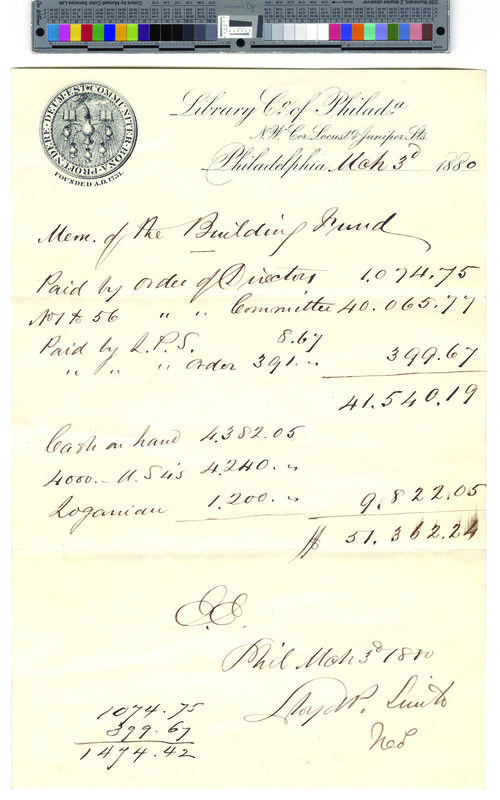 COMMUNITER · BONA · PROFUNDERE · DEUM · EST
FOUNDED A.D. 1731.
Library Co. of Philada.
N.W. Cor. Locust & Juniper Sts.
Philadelphia Mch 3d 1880
Mem. of the Building Fund
Paid by order of Directors 1.074.75
No 1 to 56 " " Committee 40.065.77
Paid by L.P.S. 8.67
" " " order 391. " 399.67
41.540.19
Cash on hand 4.382.05
4000.- U.S 4s 4.240. "
Loganian 1.200. " 9.822.05
$ 51.362.24
E.E.
Phil Mch 3d 1880
Lloyd P. Smith
1074.75
399.67
1474.42